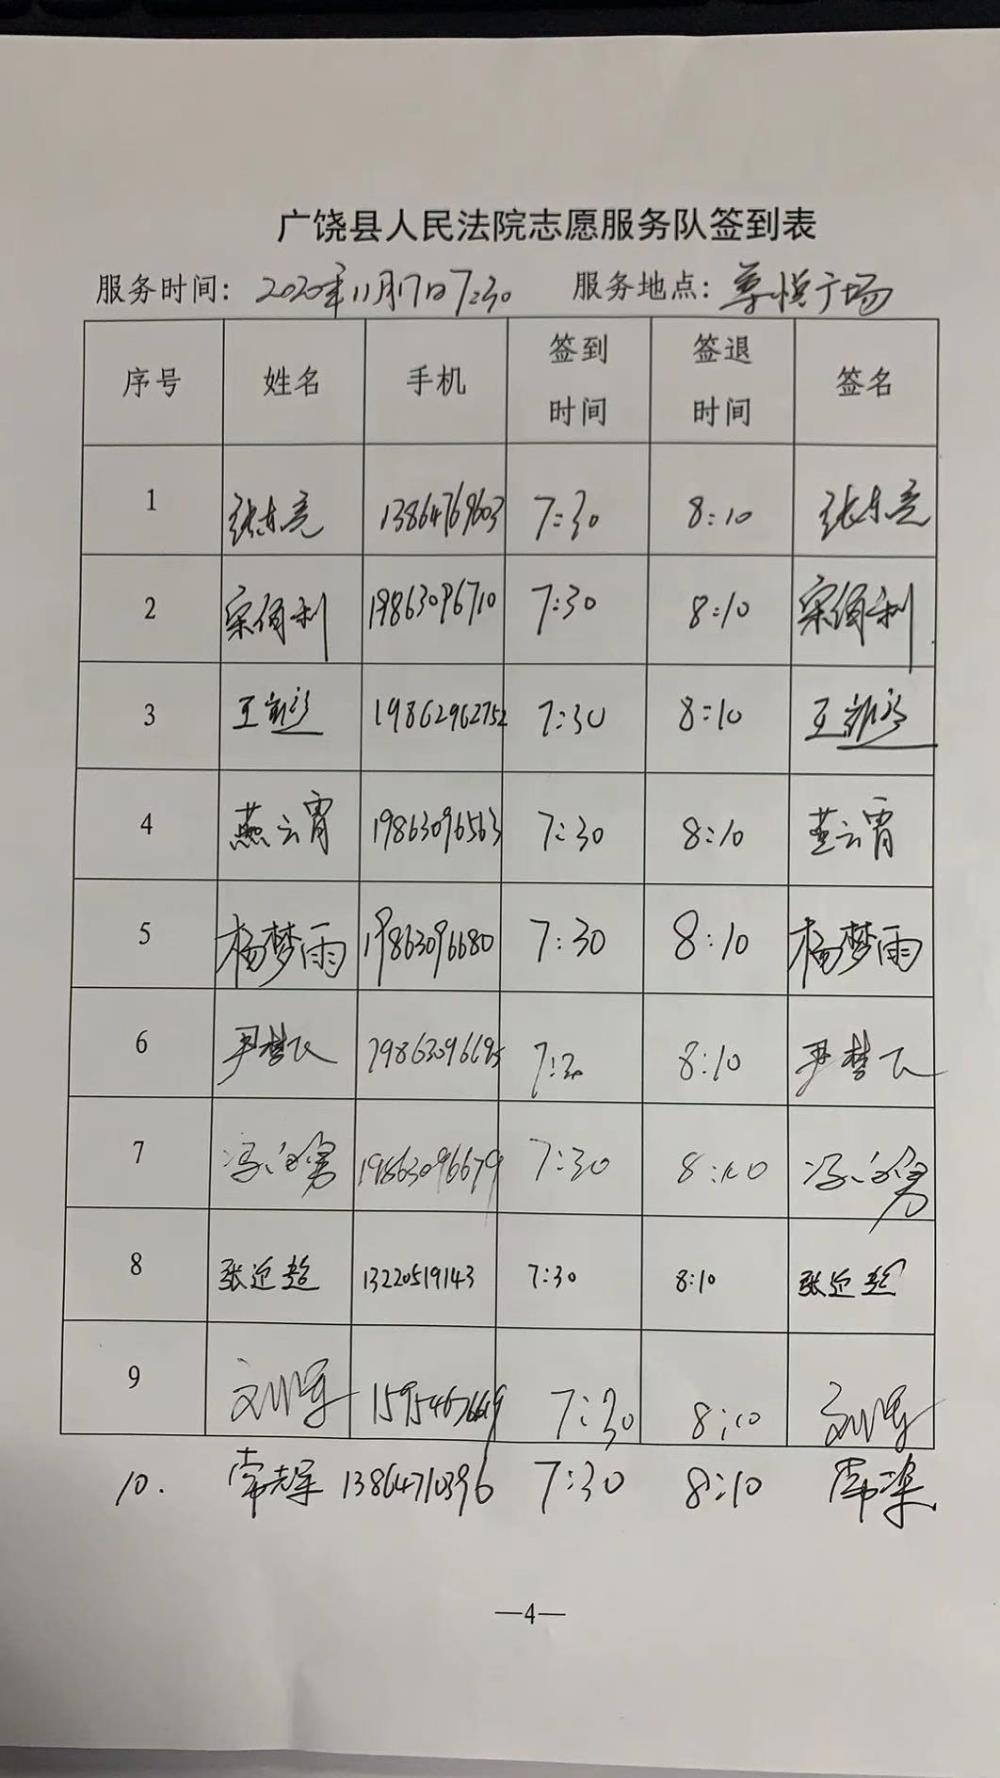 广饶县人民法院志愿服务队签到表
服务时间：2020年11月17日7:30 服务地点：尊悦广场
序号 姓名 手机 签到时间 签退时间 签名
1 张东亮 13864769603 7:30 8:10 张东亮
2 宋倩利 19863096710 7:30 8:10 宋倩利
3 王 19862962752 7:30 8:10 王
4 燕云霄 19863096563 7:30 8:10 燕云霄
5 杨梦雨 19863096680 7:30 8:10 杨梦雨
6 尹梦飞 7:30 8:10 尹梦飞
7 冯 19863096679 7:30 8:10 冯
8 张迎超 13220519143 7:30 8:10 张迎超
9 7:30 8:10
10. 常 13864710396 7:30 8:10 常
—4—